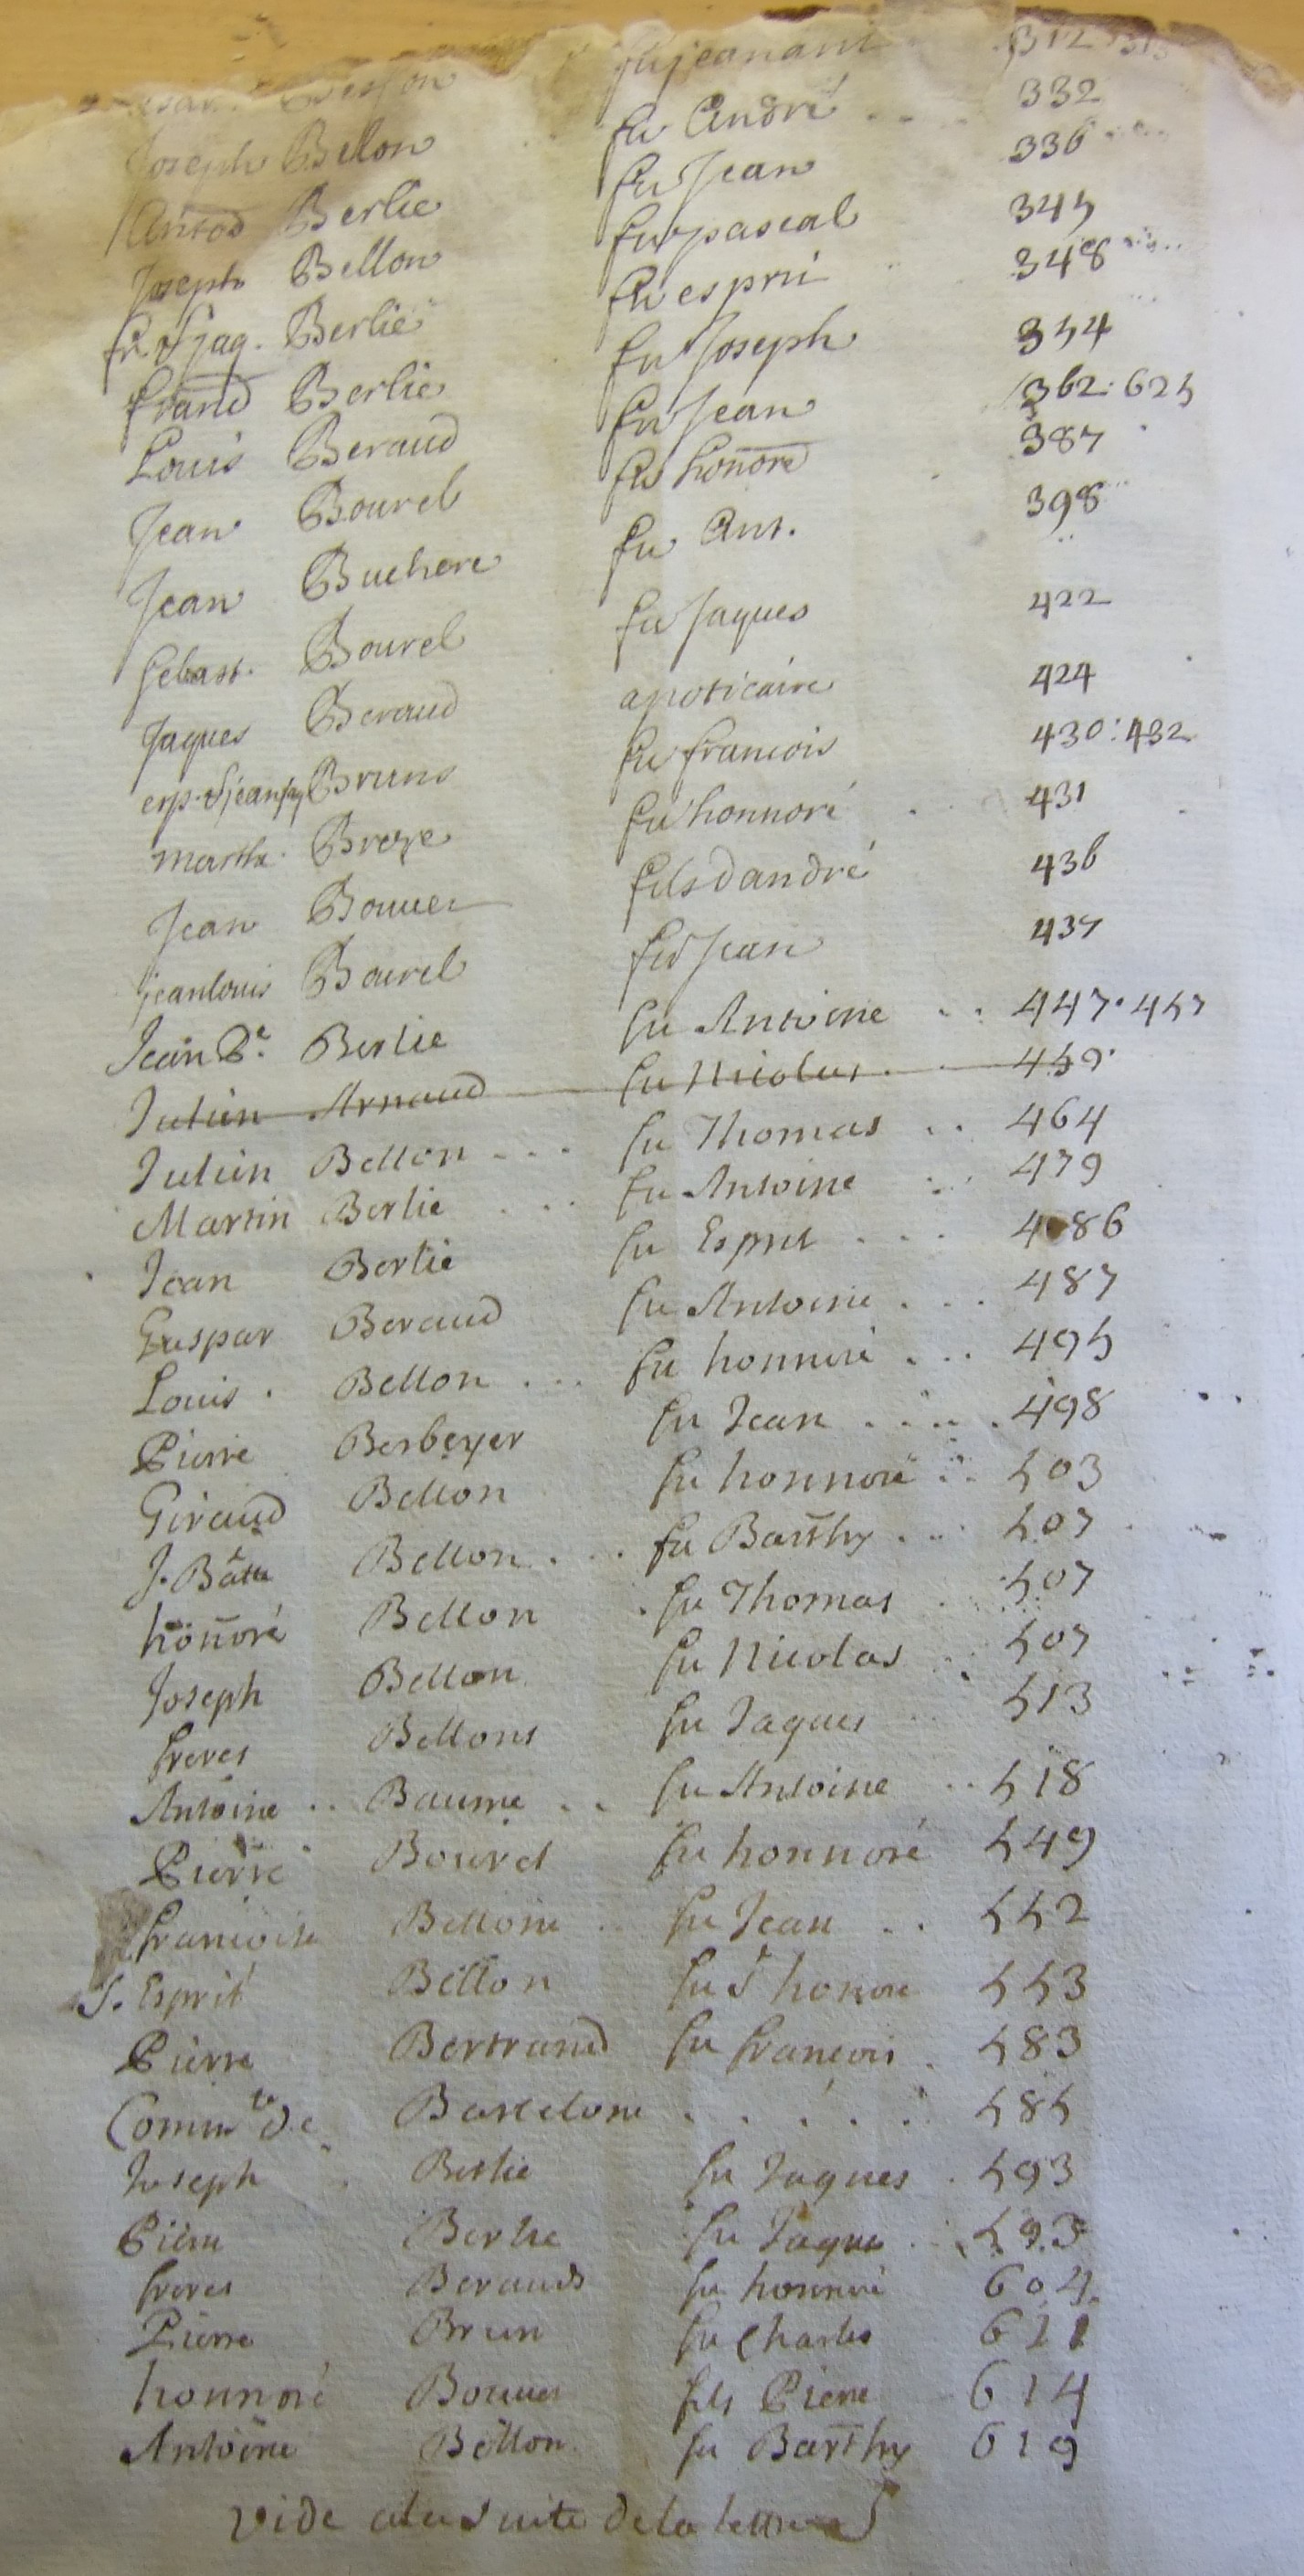 fu jeanant 312
Joseph Bellon fu André .... 332
Antod Berlie fu Jean 336
Joseph Bellon fu pascal 345
fr. & jaq. Berlie fu esprit 348
francd Berlie fu Joseph 354
Louis Beraud fu Jean 362: 625
Jean Bourel fu honoré 387
Jean Buchere fu Ant. 398
Sebast. Bourel fu Jaques 422
Jaques Beraud apoticaire 424
Bruns fu francois 430: 432
martha Breye fu honnoré 431
Jean Bouuer fils dandré 436
jeanlouis Bourel fu Jean 437
Jean Bte. Berlie fu Antoine .. 447. 457
Julien Arnaud fu Nicolas 459
Julien Bellon ... fu Thomas .. 464
Martin Berlie ... fu Antoine 479
Jean Berlie fu Esprit ... 486
Gaspar Beraud fu Antoine ... 487
Louis . Bellon ... fu honnoré ... 495
Pierre Berbeyer fu Jean .... 498
Giraud Bellon fu honnoré .. 503
J. Batte Bellon ... fu Barthy ... 507
honnoré Bellon fu Thomas 507
Joseph Bellon fu Nicolas 507
freres Bellons fu Jaques 513
Antoine .. Baume .. fu Antoine .. 518
Pierre Bourel fu honnoré 549
francoise Bellone fu Jean .. 552
S. Esprit Bellon fu Sr honoré 553
Pierre Bertrand fu francois . 583
Commte de Barcelone ..... 585
Joseph Berlie fu Jaques . 593
Pierre Berlie fu Jaques 593
freres Berauds fu honnoré 604
Pierre Brun fu Charles 611
honnoré Bouuer fils Pierre 614
Antoine Bellon fu Barthy 619
vide ala suite dela lettre S